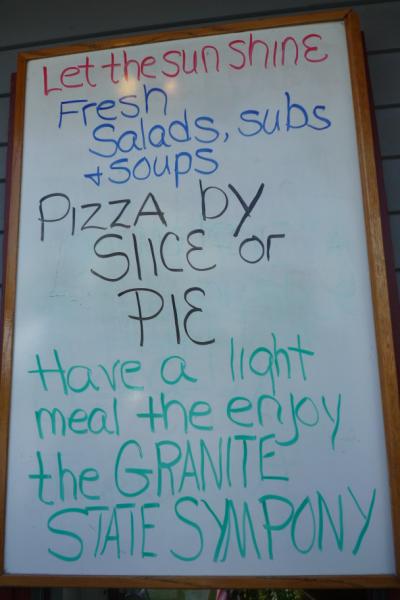 Let the sun shine
Fresh
Salads, subs
+ soups
PIZZA by
SlICE or
PIE
Have a light
meal the enjoy
the GRANITE
STATE SYMPONY